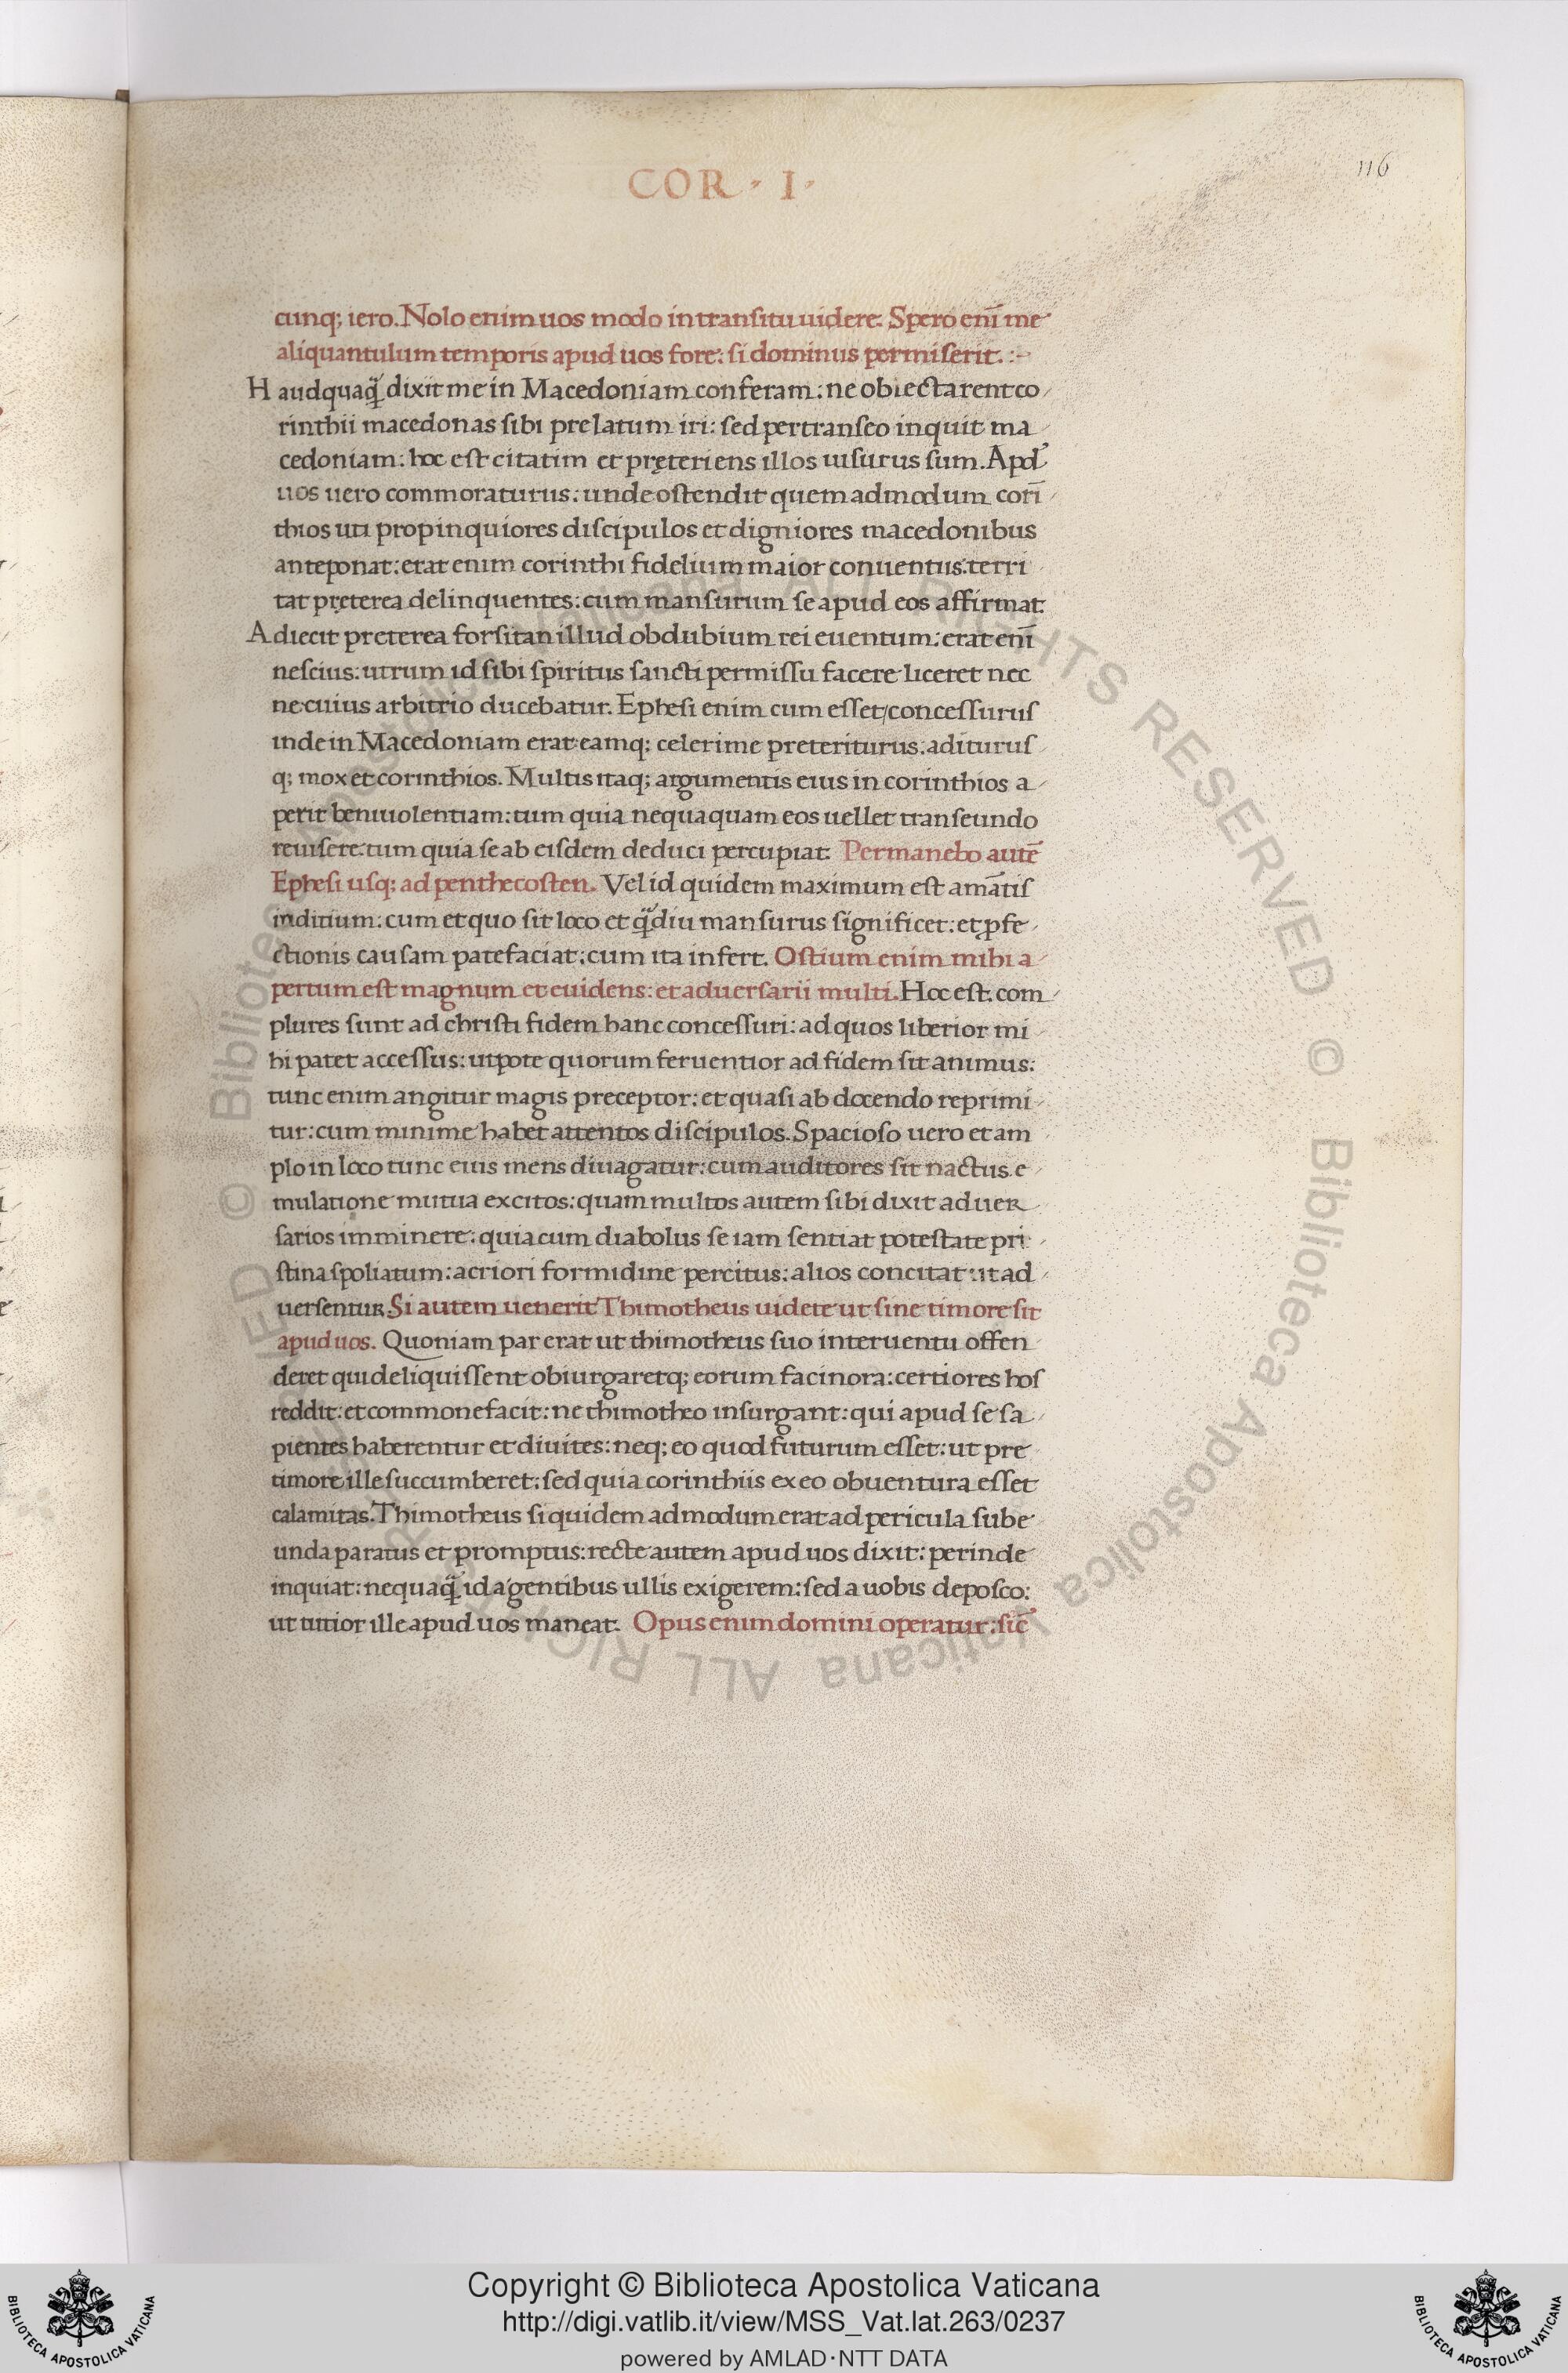 COR · I ·
116
cunq; iero. Nolo enim uos modo in transitu uidere. Spero eni̅ me
aliquantulum temporis apud uos fore: si dominus permiserit. :-
Haudquaq̃ dixit me in Macedoniam conferam: ne obiectarent co
rinthii macedonas sibi prelatum iri: sed pertranseo inquit ma
cedoniam: hoc est citatim et pręteriens illos uisurus sum. Apd'
uos uero commoraturus: unde ostendit quemadmodum cori̅
thios uti propinquiores discipulos et digniores macedonibus
anteponat: erat enim corinthi fidelium maior conuentus: terri
tat pręterea delinquentes: cum mansurum se apud eos affirmat.
Adiecit preterea forsitan illud ob dubium rei euentum: erat eni̅
nescius: utrum id sibi spiritus sancti permissu facere liceret nec
ne cuius arbitrio ducebatur. Ephesi enim cum esset/concessurus
inde in Macedoniam erat eamq; celerime preteriturus: aditurus
q; mox et corinthios. Multis itaq; argumentis eius in corinthios a
perit beniuolentiam: tum quia nequaquam eos uellet transeundo
reuisere: tum quia se ab eisdem deduci percupiat. Permanebo aute̅
Ephesi usq; ad penthecosten. Vel id quidem maximum est ama̅tis
inditium: cum et quo sit loco et q̃diu mansurus significet: et ꝓfe
ctionis causam patefaciat: cum ita infert. Ostium enim mihi a
pertum est magnum et euidens: et aduersarii multi. Hoc est. com
plures sunt ad christi fidem hanc concessuri: ad quos liberior mi
hi patet accessus: utpote quorum feruentior ad fidem sit animus:
tunc enim angitur magis preceptor: et quasi ab docendo reprimi
tur: cum minime habet attentos discipulos. Spacioso uero et am
plo in loco tunc eius mens diuagatur: cum auditores sit nactus e
mulatione mutua excitos: quam multos autem sibi dixit aduer
sarios imminere: quia cum diabolus se iam sentiat potestate pri
stina spoliatum: acriori formidine percitus: alios concitat ut ad
uersentur. Si autem uenerit Thimotheus uidete ut sine timore sit
apud uos. Quoniam par erat ut thimotheus suo interuentu offen
deret qui deliquissent obiurgaretq; eorum facinora: certiores hos
reddit: et commonefacit: ne thimotheo insurgant: qui apud se sa
pientes haberentur et diuites: neq; eo quod futurum esset: ut pre
timore ille succumberet: sed quia corinthiis ex eo obuentura esset
calamitas. Thimotheus siquidem admodum erat ad pericula sube
unda paratus et promptus: recte autem apud uos dixit: perinde
inquiat: nequaq̃ id a gentibus ullis exigerem: sed a uobis deposco:
ut tutior ille apud uos maneat. Opus enim domini operatur: sic̅
© Biblioteca Apostolica Vaticana ALL RIGHTS RESERVED © Biblioteca Apostolica Vaticana ALL RIGHTS RESERVED
Copyright © Biblioteca Apostolica Vaticana
http://digi.vatlib.it/view/MSS_Vat.lat.263/0237
powered by AMLAD·NTT DATA
BIBLIOTECA APOSTOLICA VATICANA
BIBLIOTECA APOSTOLICA VATICANA